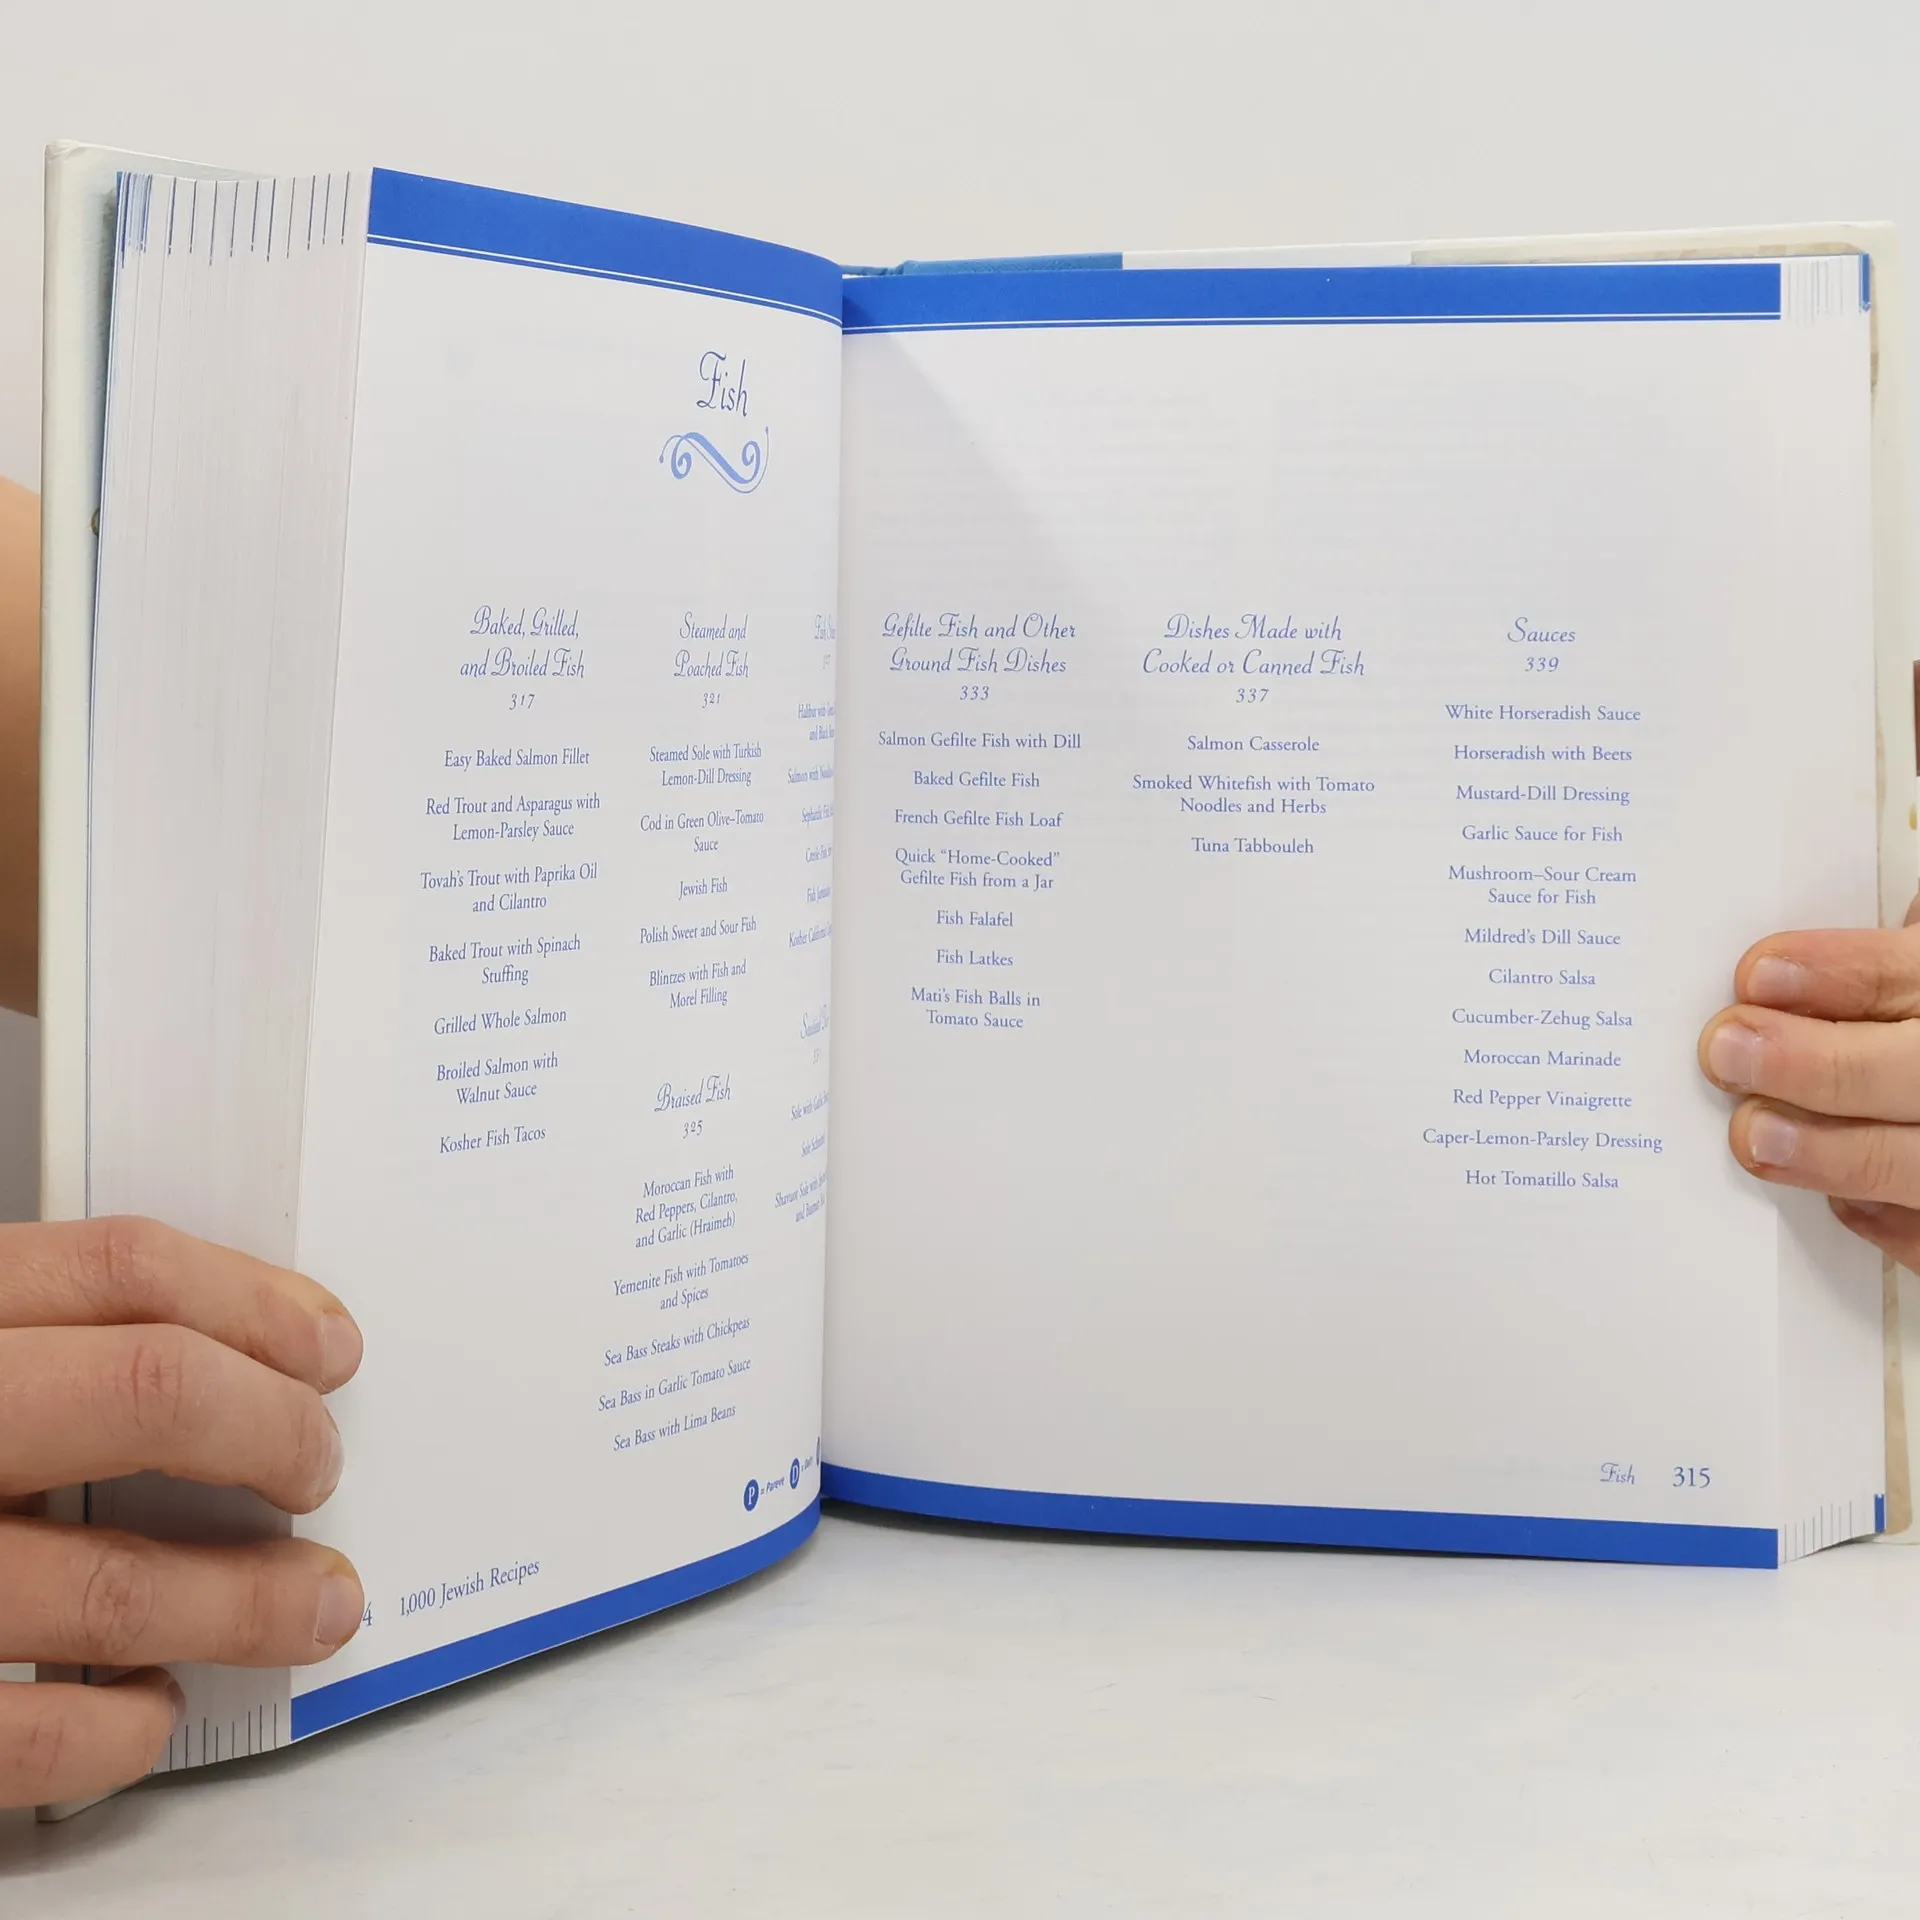 Fish
Baked, Grilled,
and Broiled Fish
317
Easy Baked Salmon Fillet
Red Trout and Asparagus with
Lemon-Parsley Sauce
Tovah's Trout with Paprika Oil
and Cilantro
Baked Trout with Spinach
Stuffing
Grilled Whole Salmon
Broiled Salmon with
Walnut Sauce
Kosher Fish Tacos
Steamed and
Poached Fish
321
Steamed Sole with Turkish
Lemon-Dill Dressing
Cod in Green Olive–Tomato
Sauce
Jewish Fish
Polish Sweet and Sour Fish
Blintzes with Fish and
Morel Filling
Braised Fish
325
Moroccan Fish with
Red Peppers, Cilantro,
and Garlic (Hraimeh)
Yemenite Fish with Tomatoes
and Spices
Sea Bass Steaks with Chickpeas
Sea Bass in Garlic Tomato Sauce
Sea Bass with Lima Beans
Halibut with
and Black
Salmon with
Sole with
and
P = Pareve D
4 1,000 Jewish Recipes
Gefilte Fish and Other
Ground Fish Dishes
333
Salmon Gefilte Fish with Dill
Baked Gefilte Fish
French Gefilte Fish Loaf
Quick “Home-Cooked”
Gefilte Fish from a Jar
Fish Falafel
Fish Latkes
Mati's Fish Balls in
Tomato Sauce
Dishes Made with
Cooked or Canned Fish
337
Salmon Casserole
Smoked Whitefish with Tomato
Noodles and Herbs
Tuna Tabbouleh
Sauces
339
White Horseradish Sauce
Horseradish with Beets
Mustard-Dill Dressing
Garlic Sauce for Fish
Mushroom–Sour Cream
Sauce for Fish
Mildred's Dill Sauce
Cilantro Salsa
Cucumber-Zehug Salsa
Moroccan Marinade
Red Pepper Vinaigrette
Caper-Lemon-Parsley Dressing
Hot Tomatillo Salsa
Fish 315